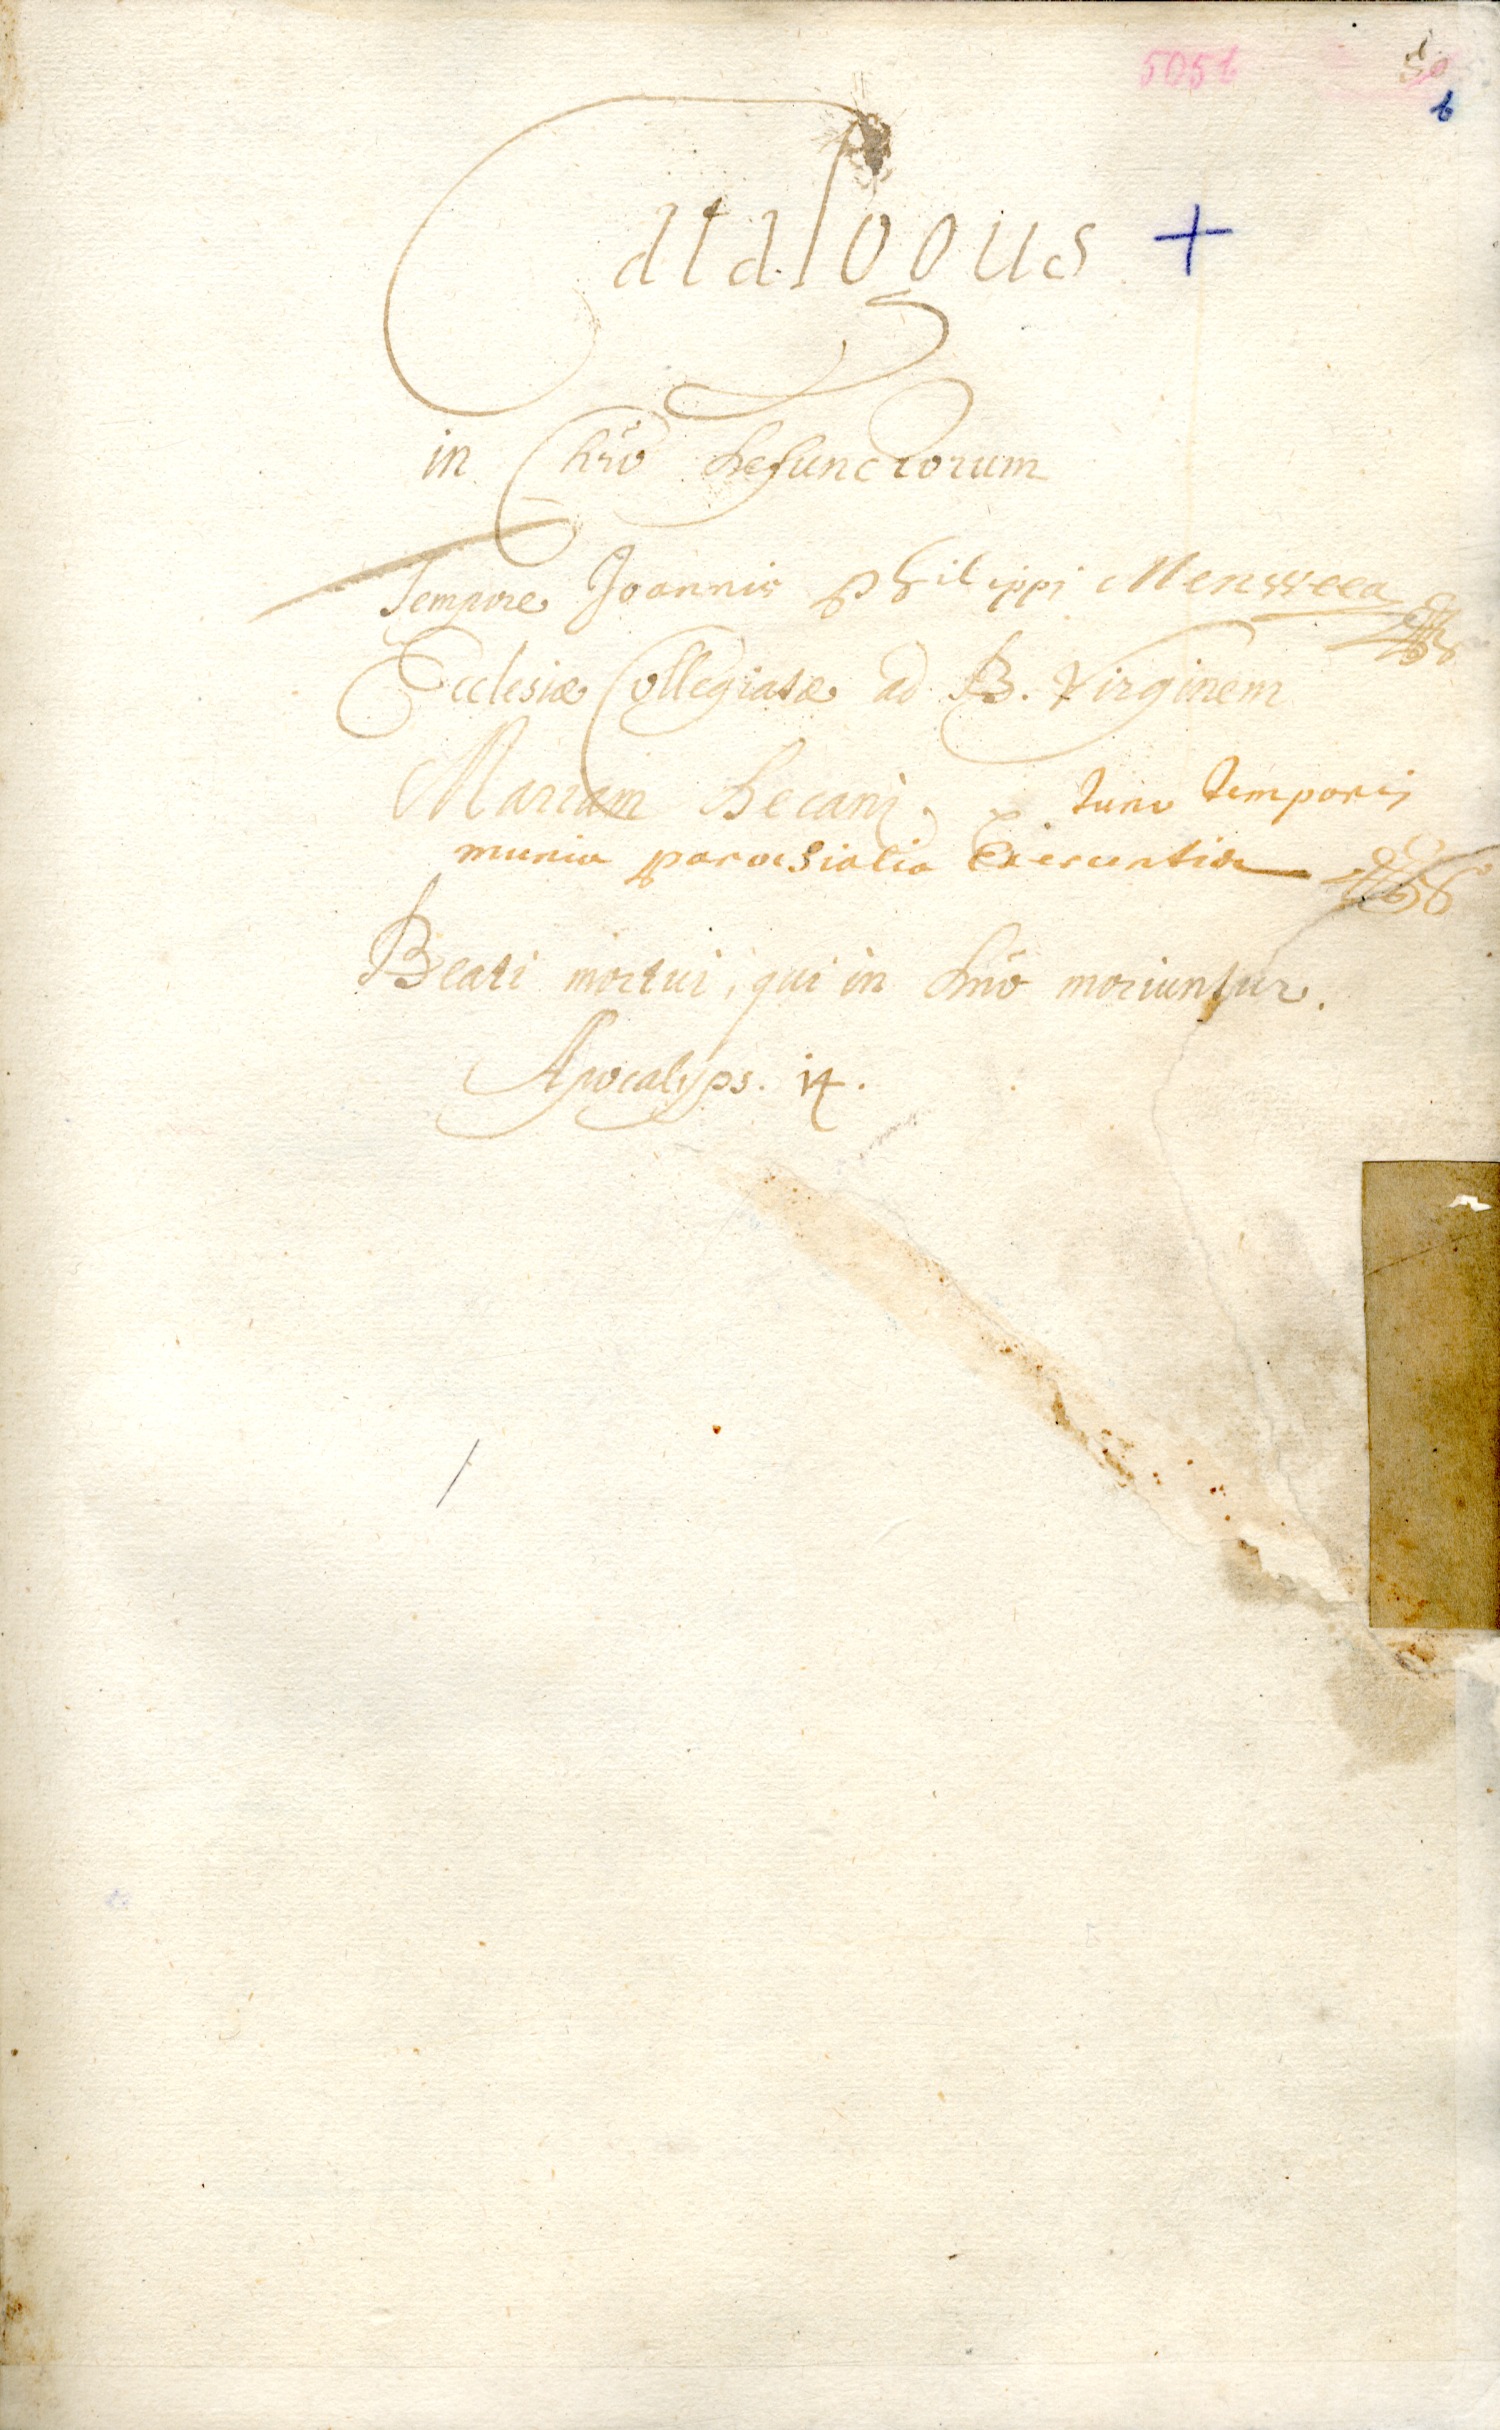 5051
b
Catalogus +
in Chr̃o defunctorum
Tempore Joannis Philippi Mensweea
Ecclesiæ Collegiatæ ad B. Virginem
Mariam Decani. tunc temporis
munia parochialia Exercentis
Beati mortui, qui in Dnõ moriuntur.
Apocalyps. 14.